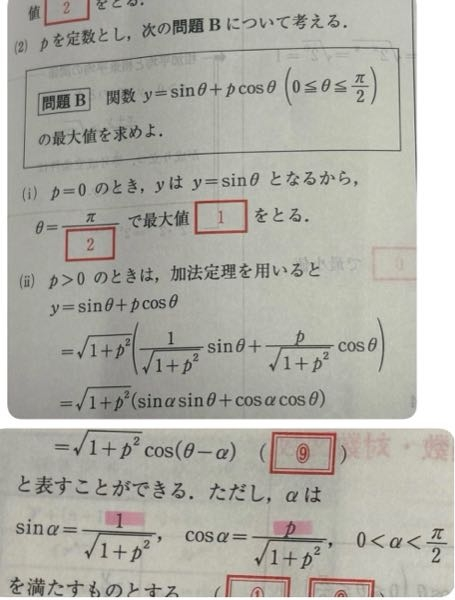 値 2 をとる.
(2) pを定数とし，次の問題Bについて考える.
問題B 関数 y=sinθ+pcosθ (0≦θ≦π/2)
の最大値を求めよ.
(i) p=0 のとき，yは y=sinθ となるから，
θ=π/2 で最大値 1 をとる.
(ii) p>0 のときは，加法定理を用いると
y=sinθ+pcosθ
=√(1+p²)(1/√(1+p²) sinθ+p/√(1+p²) cosθ)
=√(1+p²)(sinαsinθ+cosαcosθ)
=√(1+p²)cos(θ−α) (⑨)
と表すことができる．ただし，αは
sinα=1/√(1+p²)，cosα=p/√(1+p²)，0<α<π/2
を満たすものとする